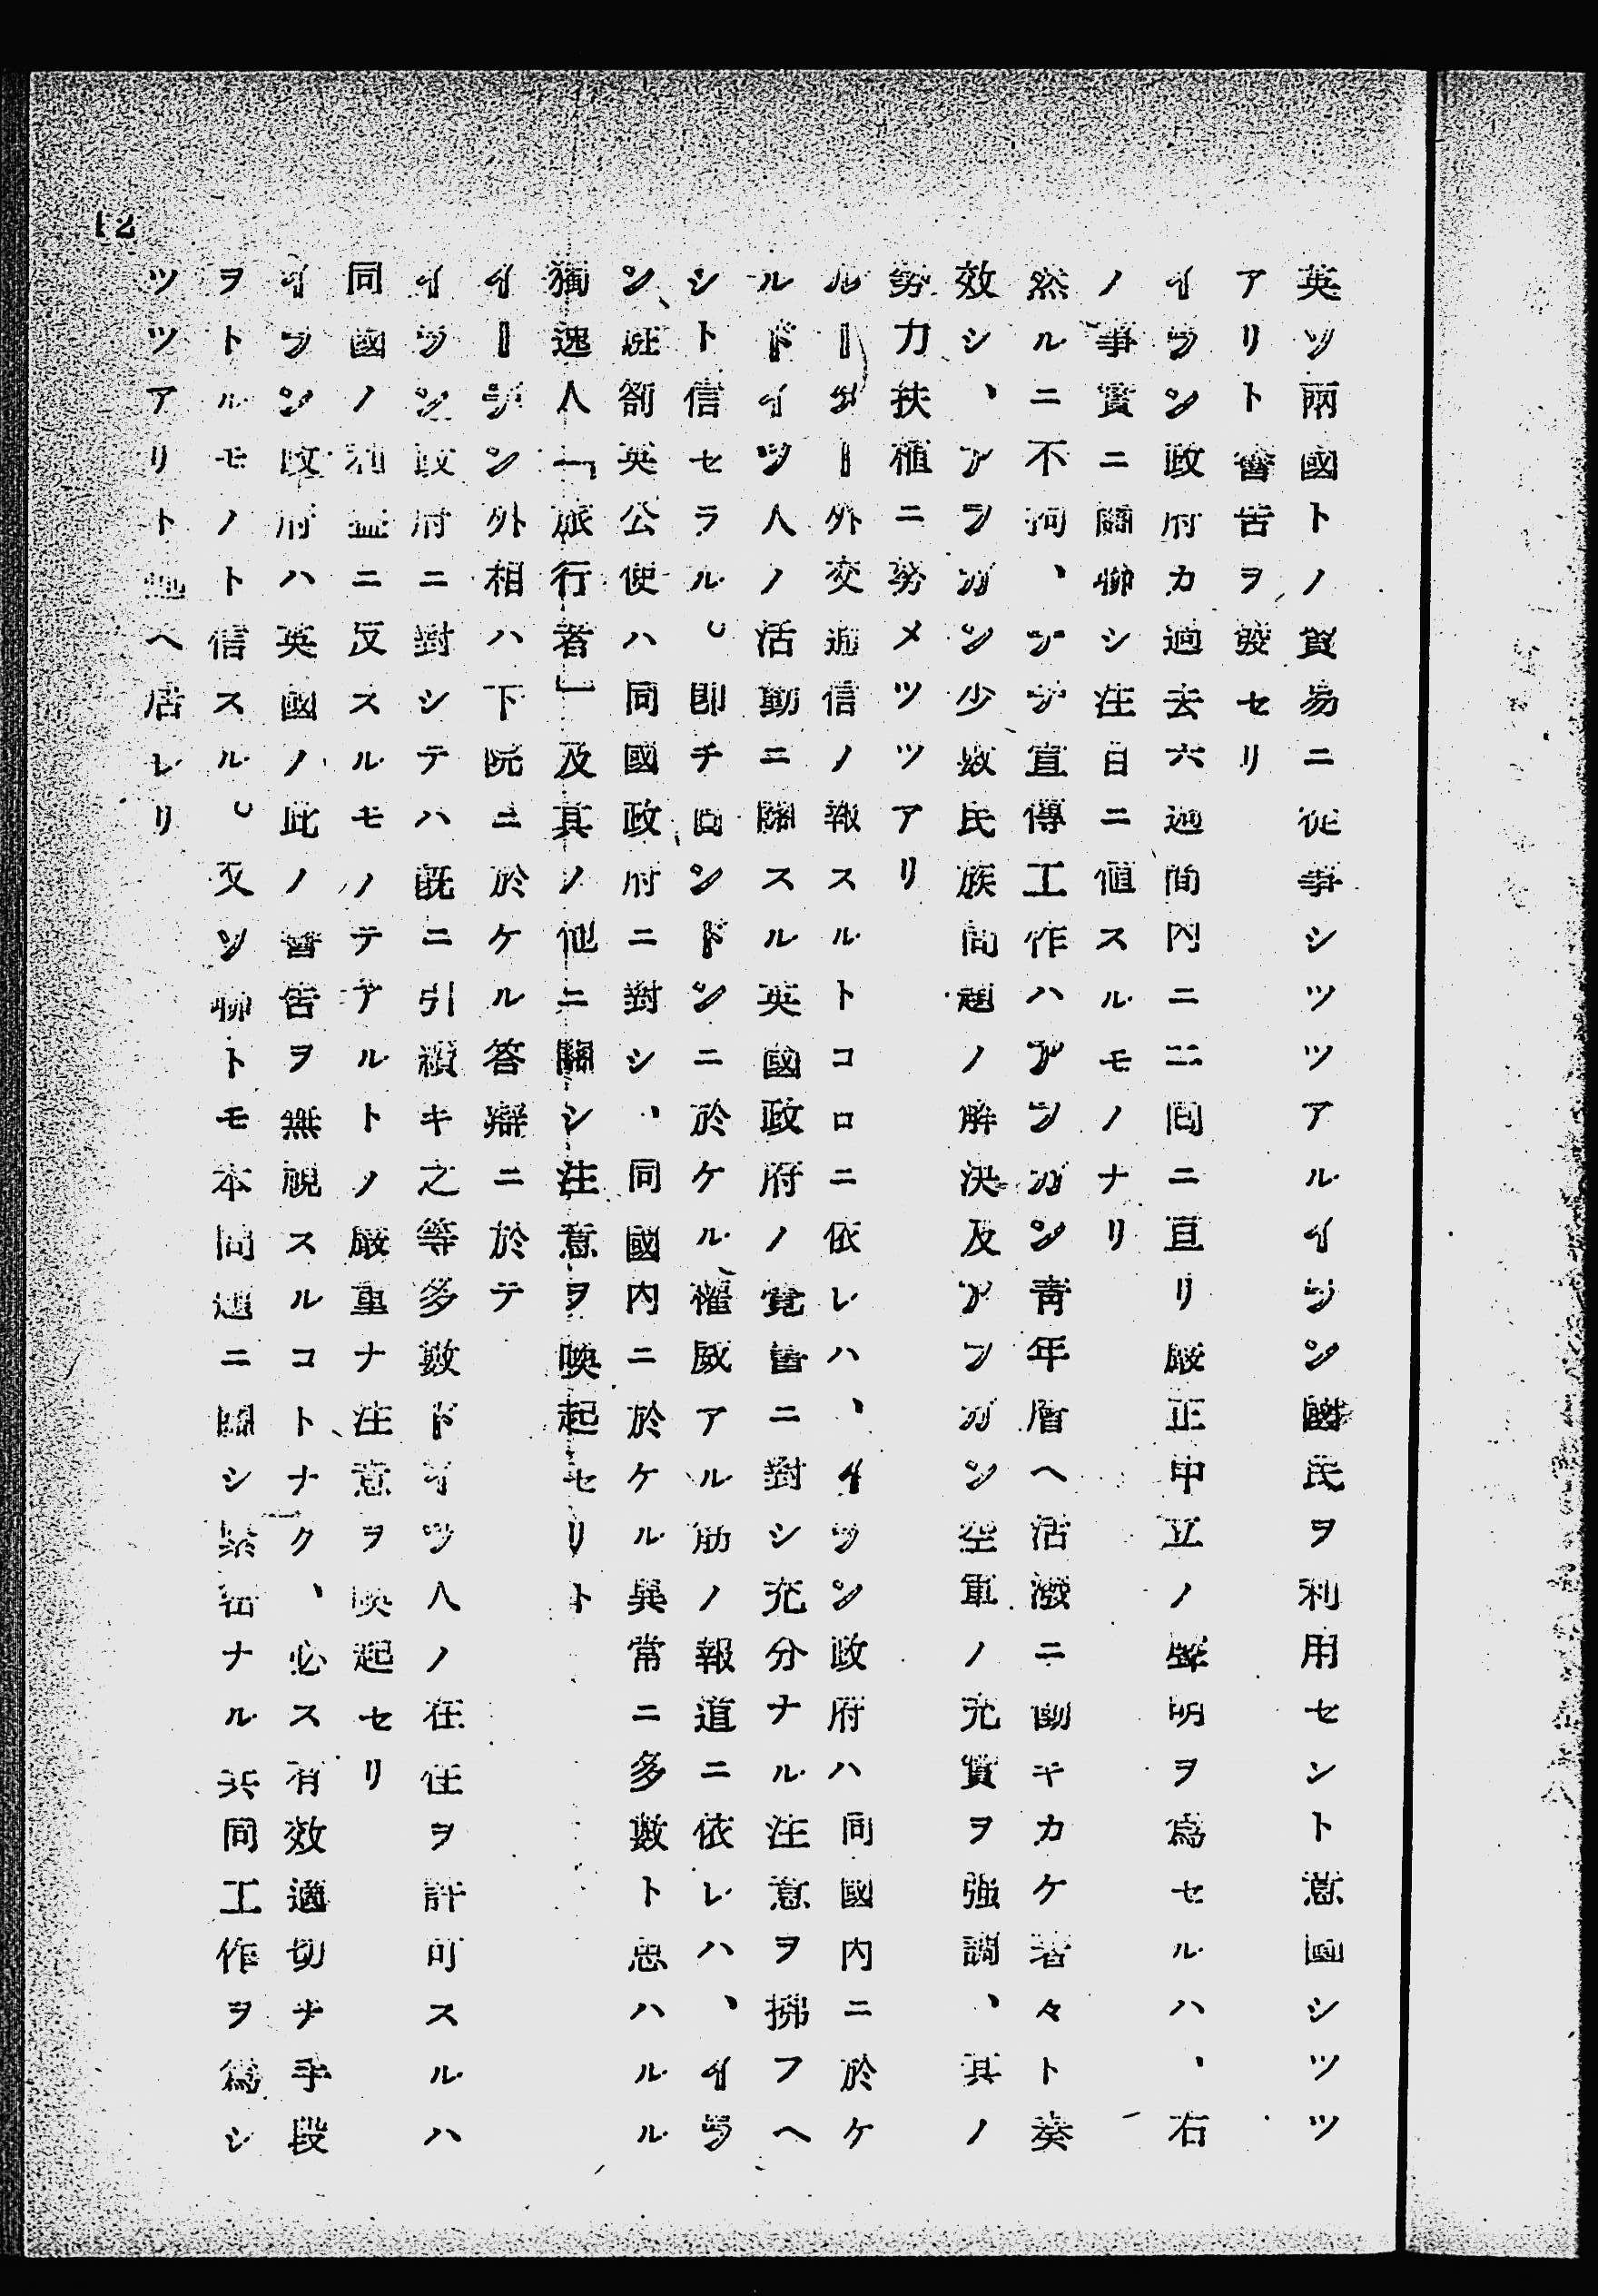 英ソ兩國トノ貿易ニ從事シツツアルイラン國民ヲ利用セント意圖シツツ
アリト警告ヲ發セリ
イラン政府カ過去六週間内ニ二囘ニ亘リ嚴正中立ノ聲明ヲ爲セルハ、右
ノ事實ニ關聯シ注目ニ値スルモノナリ
然ルニ不拘、ナチ宣傳工作ハアフガン青年層ヘ活潑ニ働キカケ着々ト奏
效シ、アフガン少數民族問題ノ解決及アフガン空軍ノ充實ヲ強調、其ノ
勢力扶植ニ努メツツアリ
ルーター外交通信ノ報スルトコロニ依レハ、イラン政府ハ同國内ニ於ケ
ルドイツ人ノ活動ニ關スル英國政府ノ覺書ニ對シ充分ナル注意ヲ拂フヘ
シト信セラル。即チロンドンニ於ケル權威アル筋ノ報道ニ依レハ、イラ
ン、駐剳英公使ハ同國政府ニ對シ、同國内ニ於ケル異常ニ多數ト思ハルル
獨逸人「旅行者」及其ノ他ニ關シ注意ヲ喚起セリト
イーデン外相ハ下院ニ於ケル答辯ニ於テ
イラン政府ニ對シテハ既ニ引續キ之等多數ドイツ人ノ在住ヲ許可スルハ
同國ノ利益ニ反スルモノノテアルトノ嚴重ナ注意ヲ喚起セリ
イラン政府ハ英國ノ此ノ警告ヲ無視スルコトナク、必ス有效適切ナ手段
ヲトルモノト信スル。又ソ聯トモ本問題ニ關シ緊密ナル共同工作ヲ爲シ
ツツアリト述ヘ居レリ
12